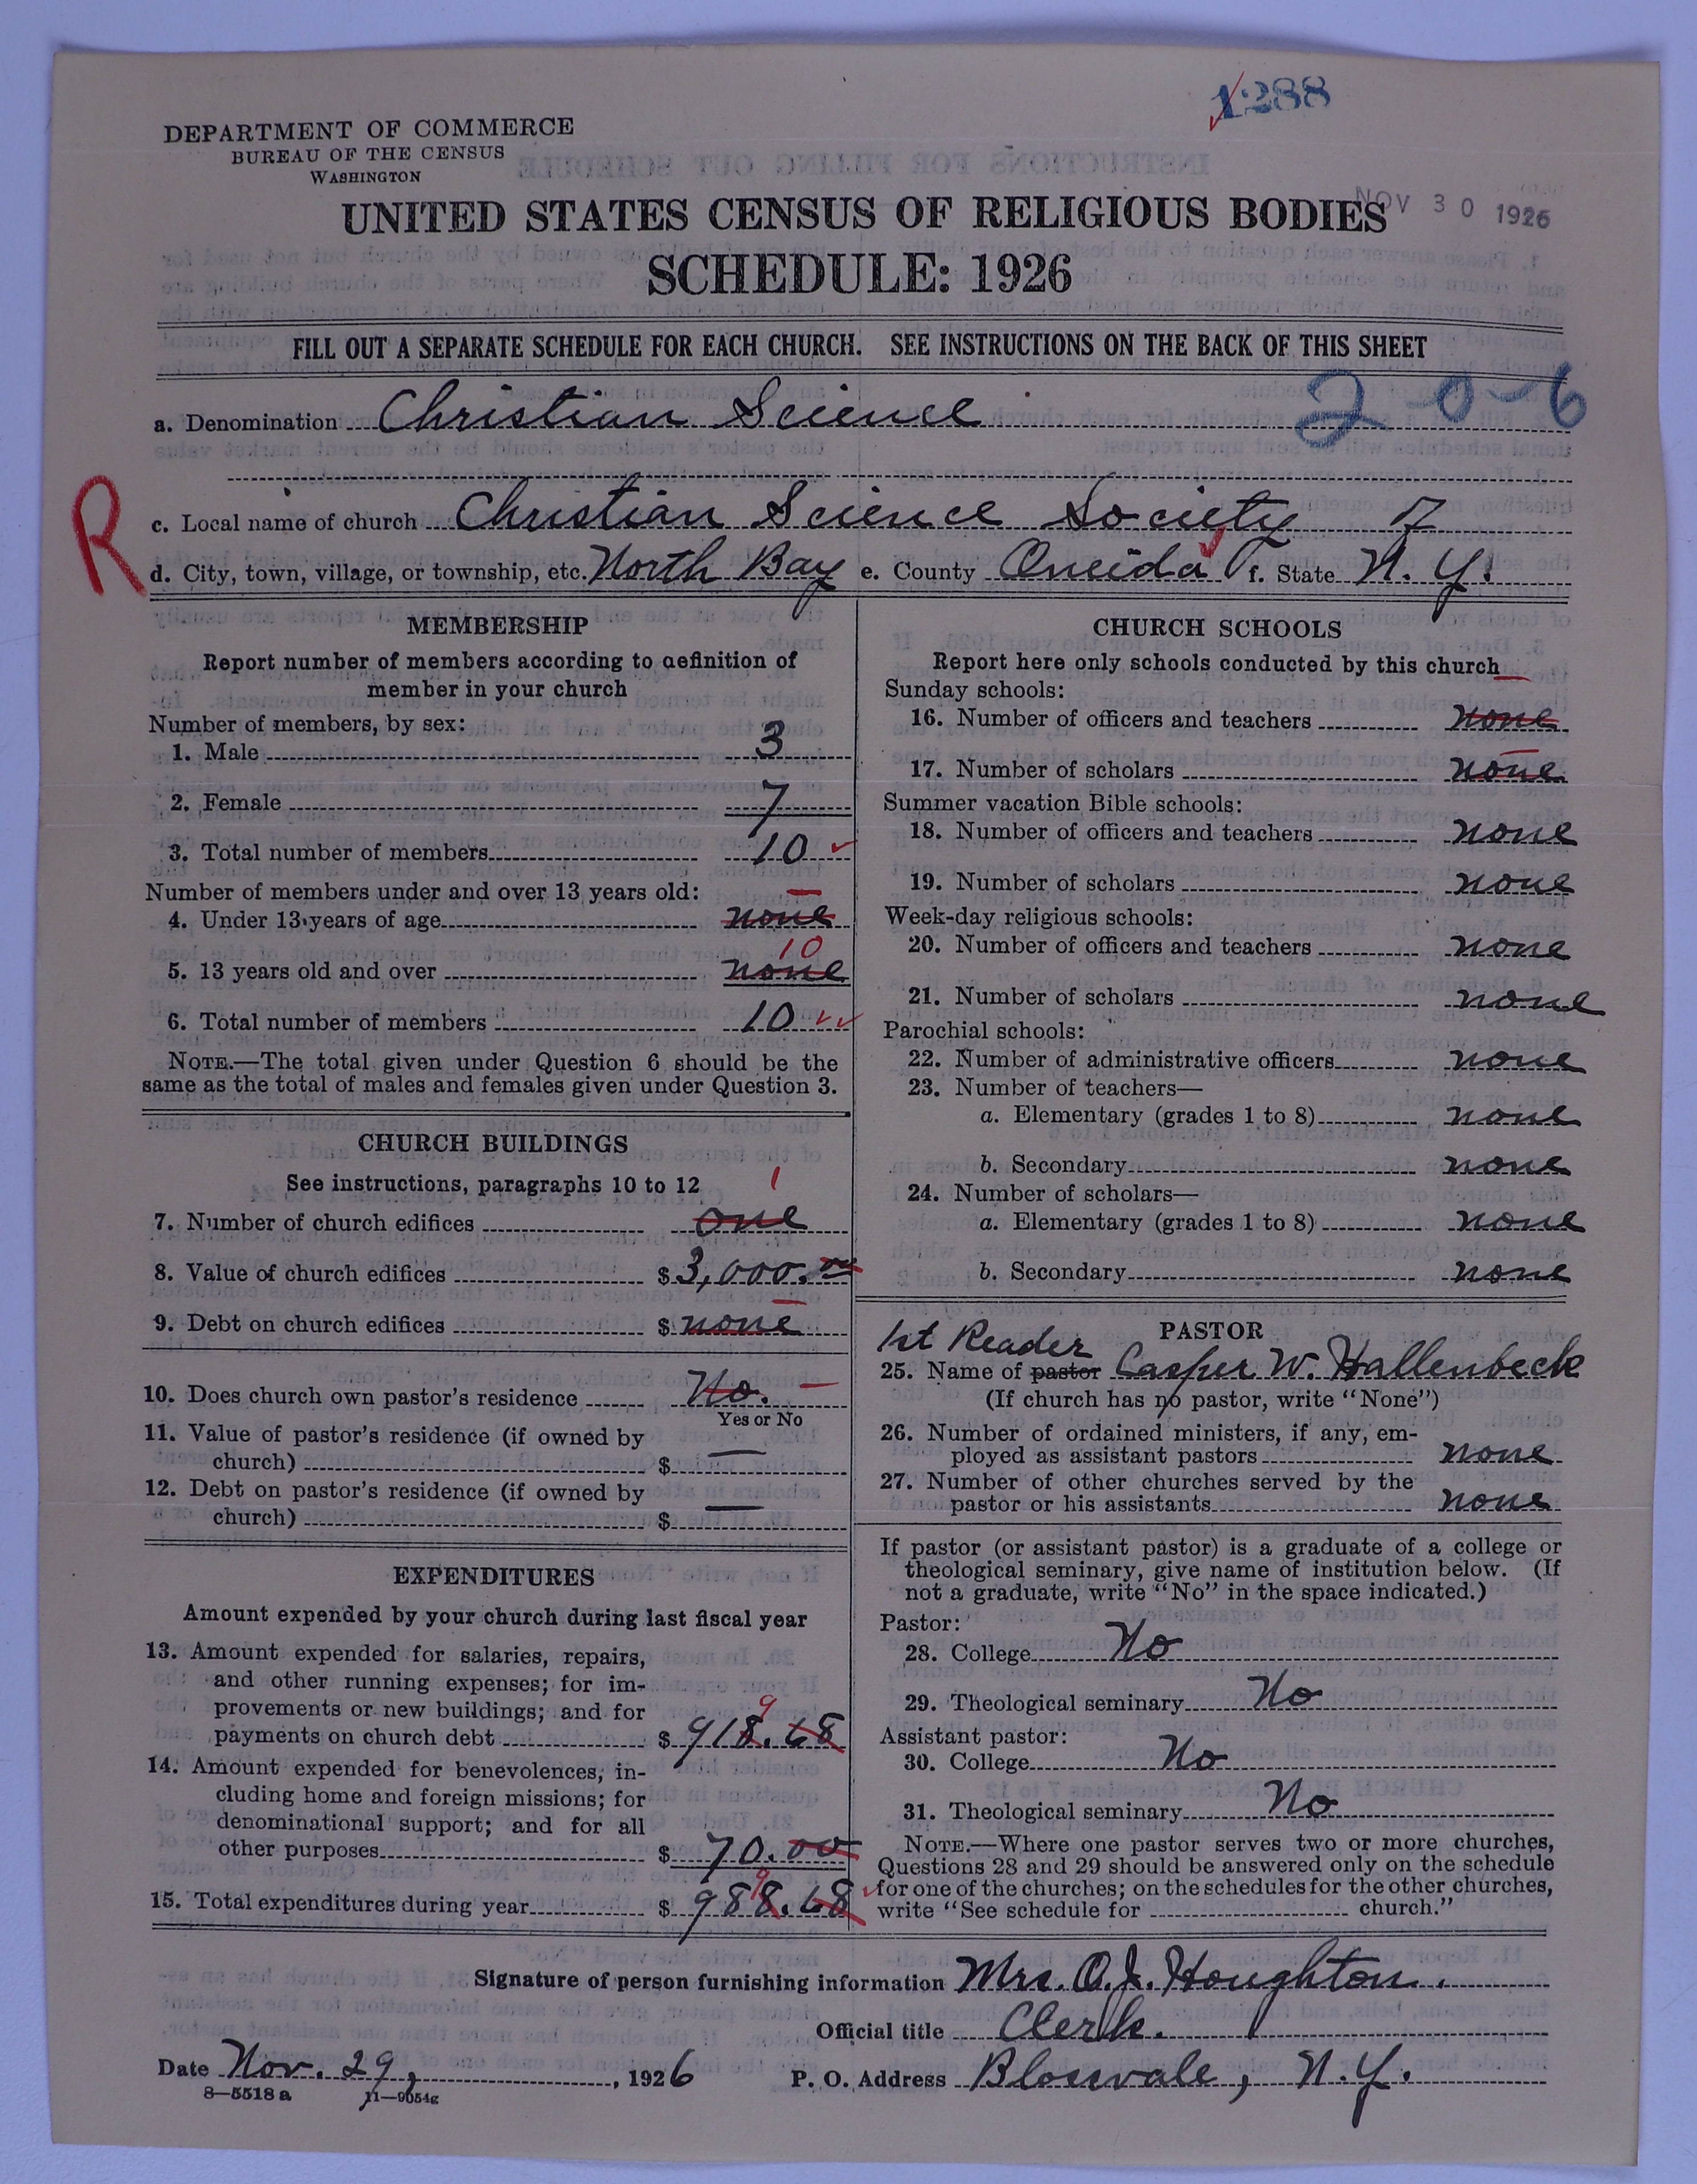 1288
DEPARTMENT OF COMMERCE
BUREAU OF THE CENSUS
WASHINGTON
NOV 30 1926
UNITED STATES CENSUS OF RELIGIOUS BODIES
SCHEDULE: 1926
FILL OUT A SEPARATE SCHEDULE FOR EACH CHURCH. SEE INSTRUCTIONS ON THE BACK OF THIS SHEET
2-0-6
a. Denomination Christian Science
R
c. Local name of church Christian Science Society 7
d. City, town, village, or township, etc. North Bay e. County Oneida f. State N. Y.
MEMBERSHIP
Report number of members according to definition of
member in your church
Number of members, by sex:
1. Male 3
2. Female 7
3. Total number of members 10
Number of members under and over 13 years old:
4. Under 13 years of age none
10
5. 13 years old and over none
6. Total number of members 10
NOTE.—The total given under Question 6 should be the
same as the total of males and females given under Question 3.
CHURCH BUILDINGS
See instructions, paragraphs 10 to 12 1
7. Number of church edifices one
8. Value of church edifices $ 3,000.00
9. Debt on church edifices $ none
10. Does church own pastor's residence No.
Yes or No
11. Value of pastor's residence (if owned by
church) $ —
12. Debt on pastor's residence (if owned by
church) $ —
EXPENDITURES
Amount expended by your church during last fiscal year
13. Amount expended for salaries, repairs,
and other running expenses; for im-
provements or new buildings; and for 9
payments on church debt $ 918.68
14. Amount expended for benevolences, in-
cluding home and foreign missions; for
denominational support; and for all
other purposes $ 70.00
9
15. Total expenditures during year $ 988.68
CHURCH SCHOOLS
Report here only schools conducted by this church
Sunday schools:
16. Number of officers and teachers none
17. Number of scholars none
Summer vacation Bible schools:
18. Number of officers and teachers none
19. Number of scholars none
Week-day religious schools:
20. Number of officers and teachers none
21. Number of scholars none
Parochial schools:
22. Number of administrative officers none
23. Number of teachers—
a. Elementary (grades 1 to 8) none
b. Secondary none
24. Number of scholars—
a. Elementary (grades 1 to 8) none
b. Secondary none
PASTOR
1st Reader
25. Name of pastor Casper W. Hallenbeck
(If church has no pastor, write "None")
26. Number of ordained ministers, if any, em-
ployed as assistant pastors none
27. Number of other churches served by the
pastor or his assistants none
If pastor (or assistant pastor) is a graduate of a college or
theological seminary, give name of institution below. (If
not a graduate, write "No" in the space indicated.)
Pastor:
28. College No
29. Theological seminary No
Assistant pastor:
30. College No
31. Theological seminary No
NOTE.—Where one pastor serves two or more churches,
Questions 28 and 29 should be answered only on the schedule
for one of the churches; on the schedules for the other churches,
write "See schedule for church."
Signature of person furnishing information Mrs. O. J. Houghton.
Official title Clerk.
Date Nov. 29, 1926 P. O. Address Blossvale, N.Y.
8—5518 a 11—9054g